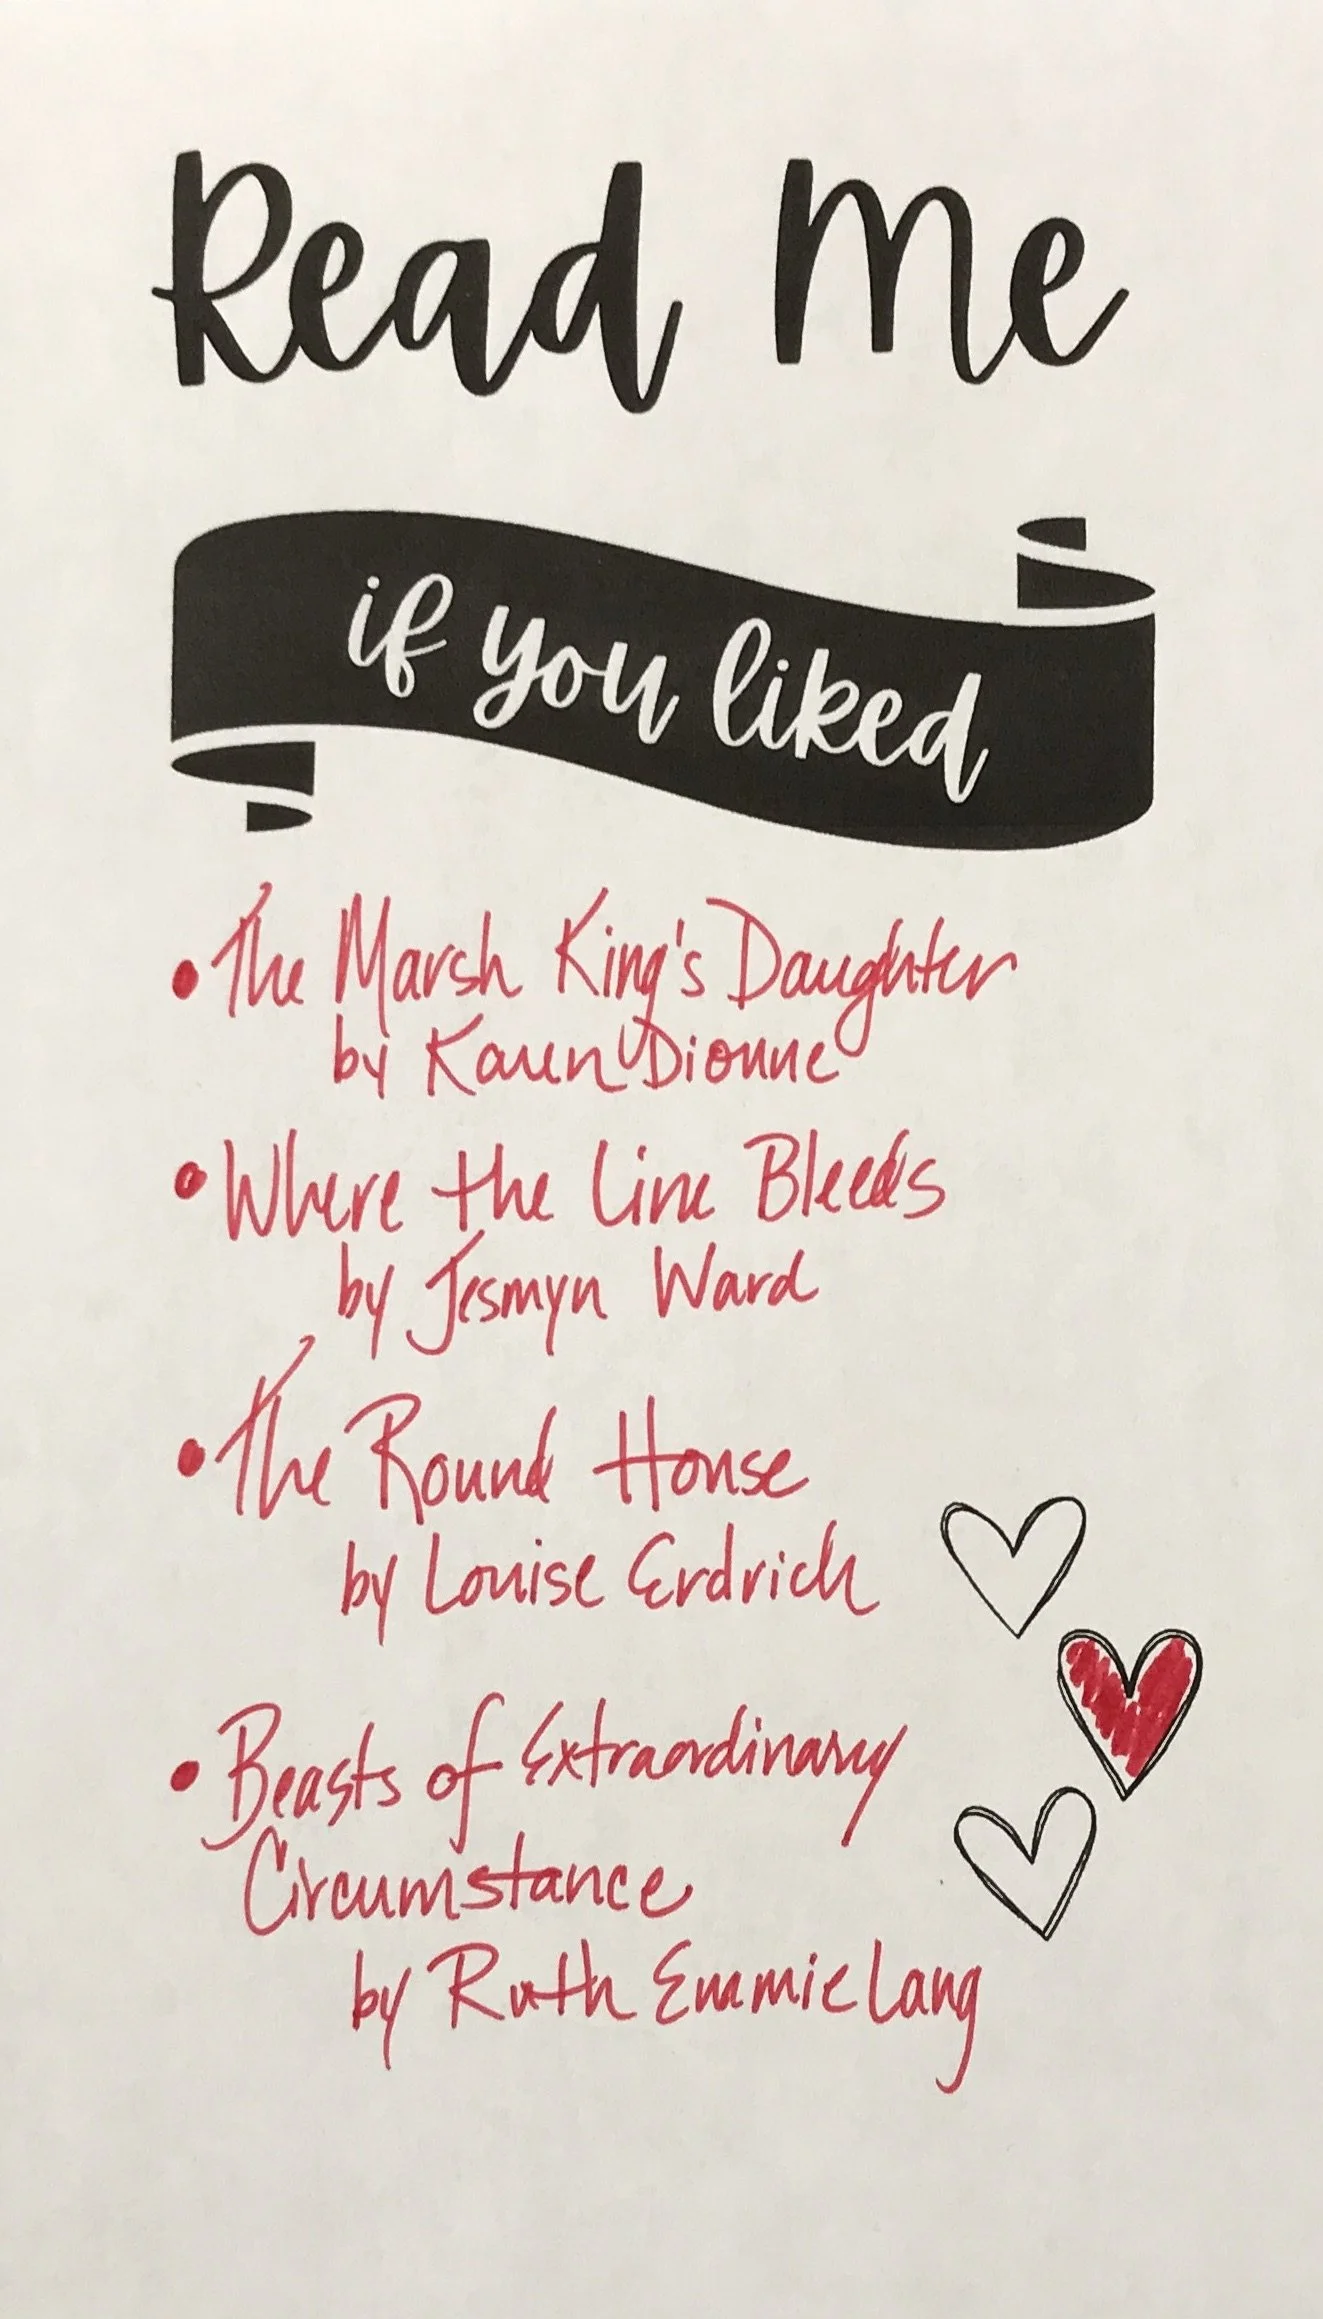 Read Me
if you liked
• The Marsh King's Daughter
by Karen Dionne
• Where the Line Bleeds
by Jesmyn Ward
• The Round House
by Louise Erdrich
• Beasts of Extraordinary
Circumstance
by Ruth Emmie Lang